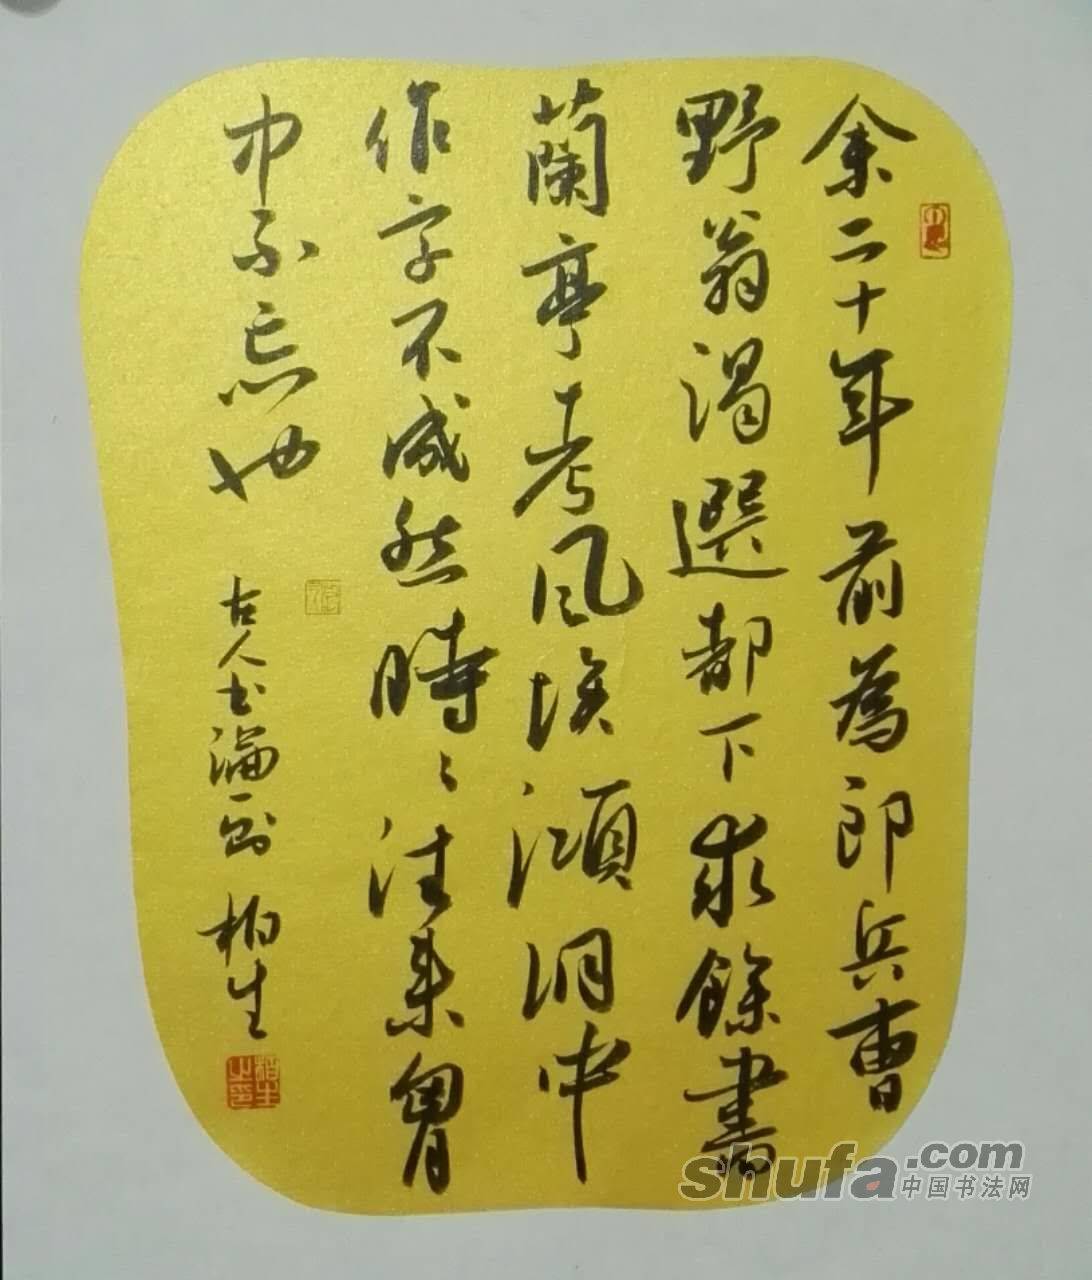 余二十年前為郎兵曹
野翁渴選都下求餘書
蘭亭考風埃澒洞中
作字不成然時時往來胷
中不忘也
古人書論一則 柏生
柏生之印
shufa.com
中国书法网